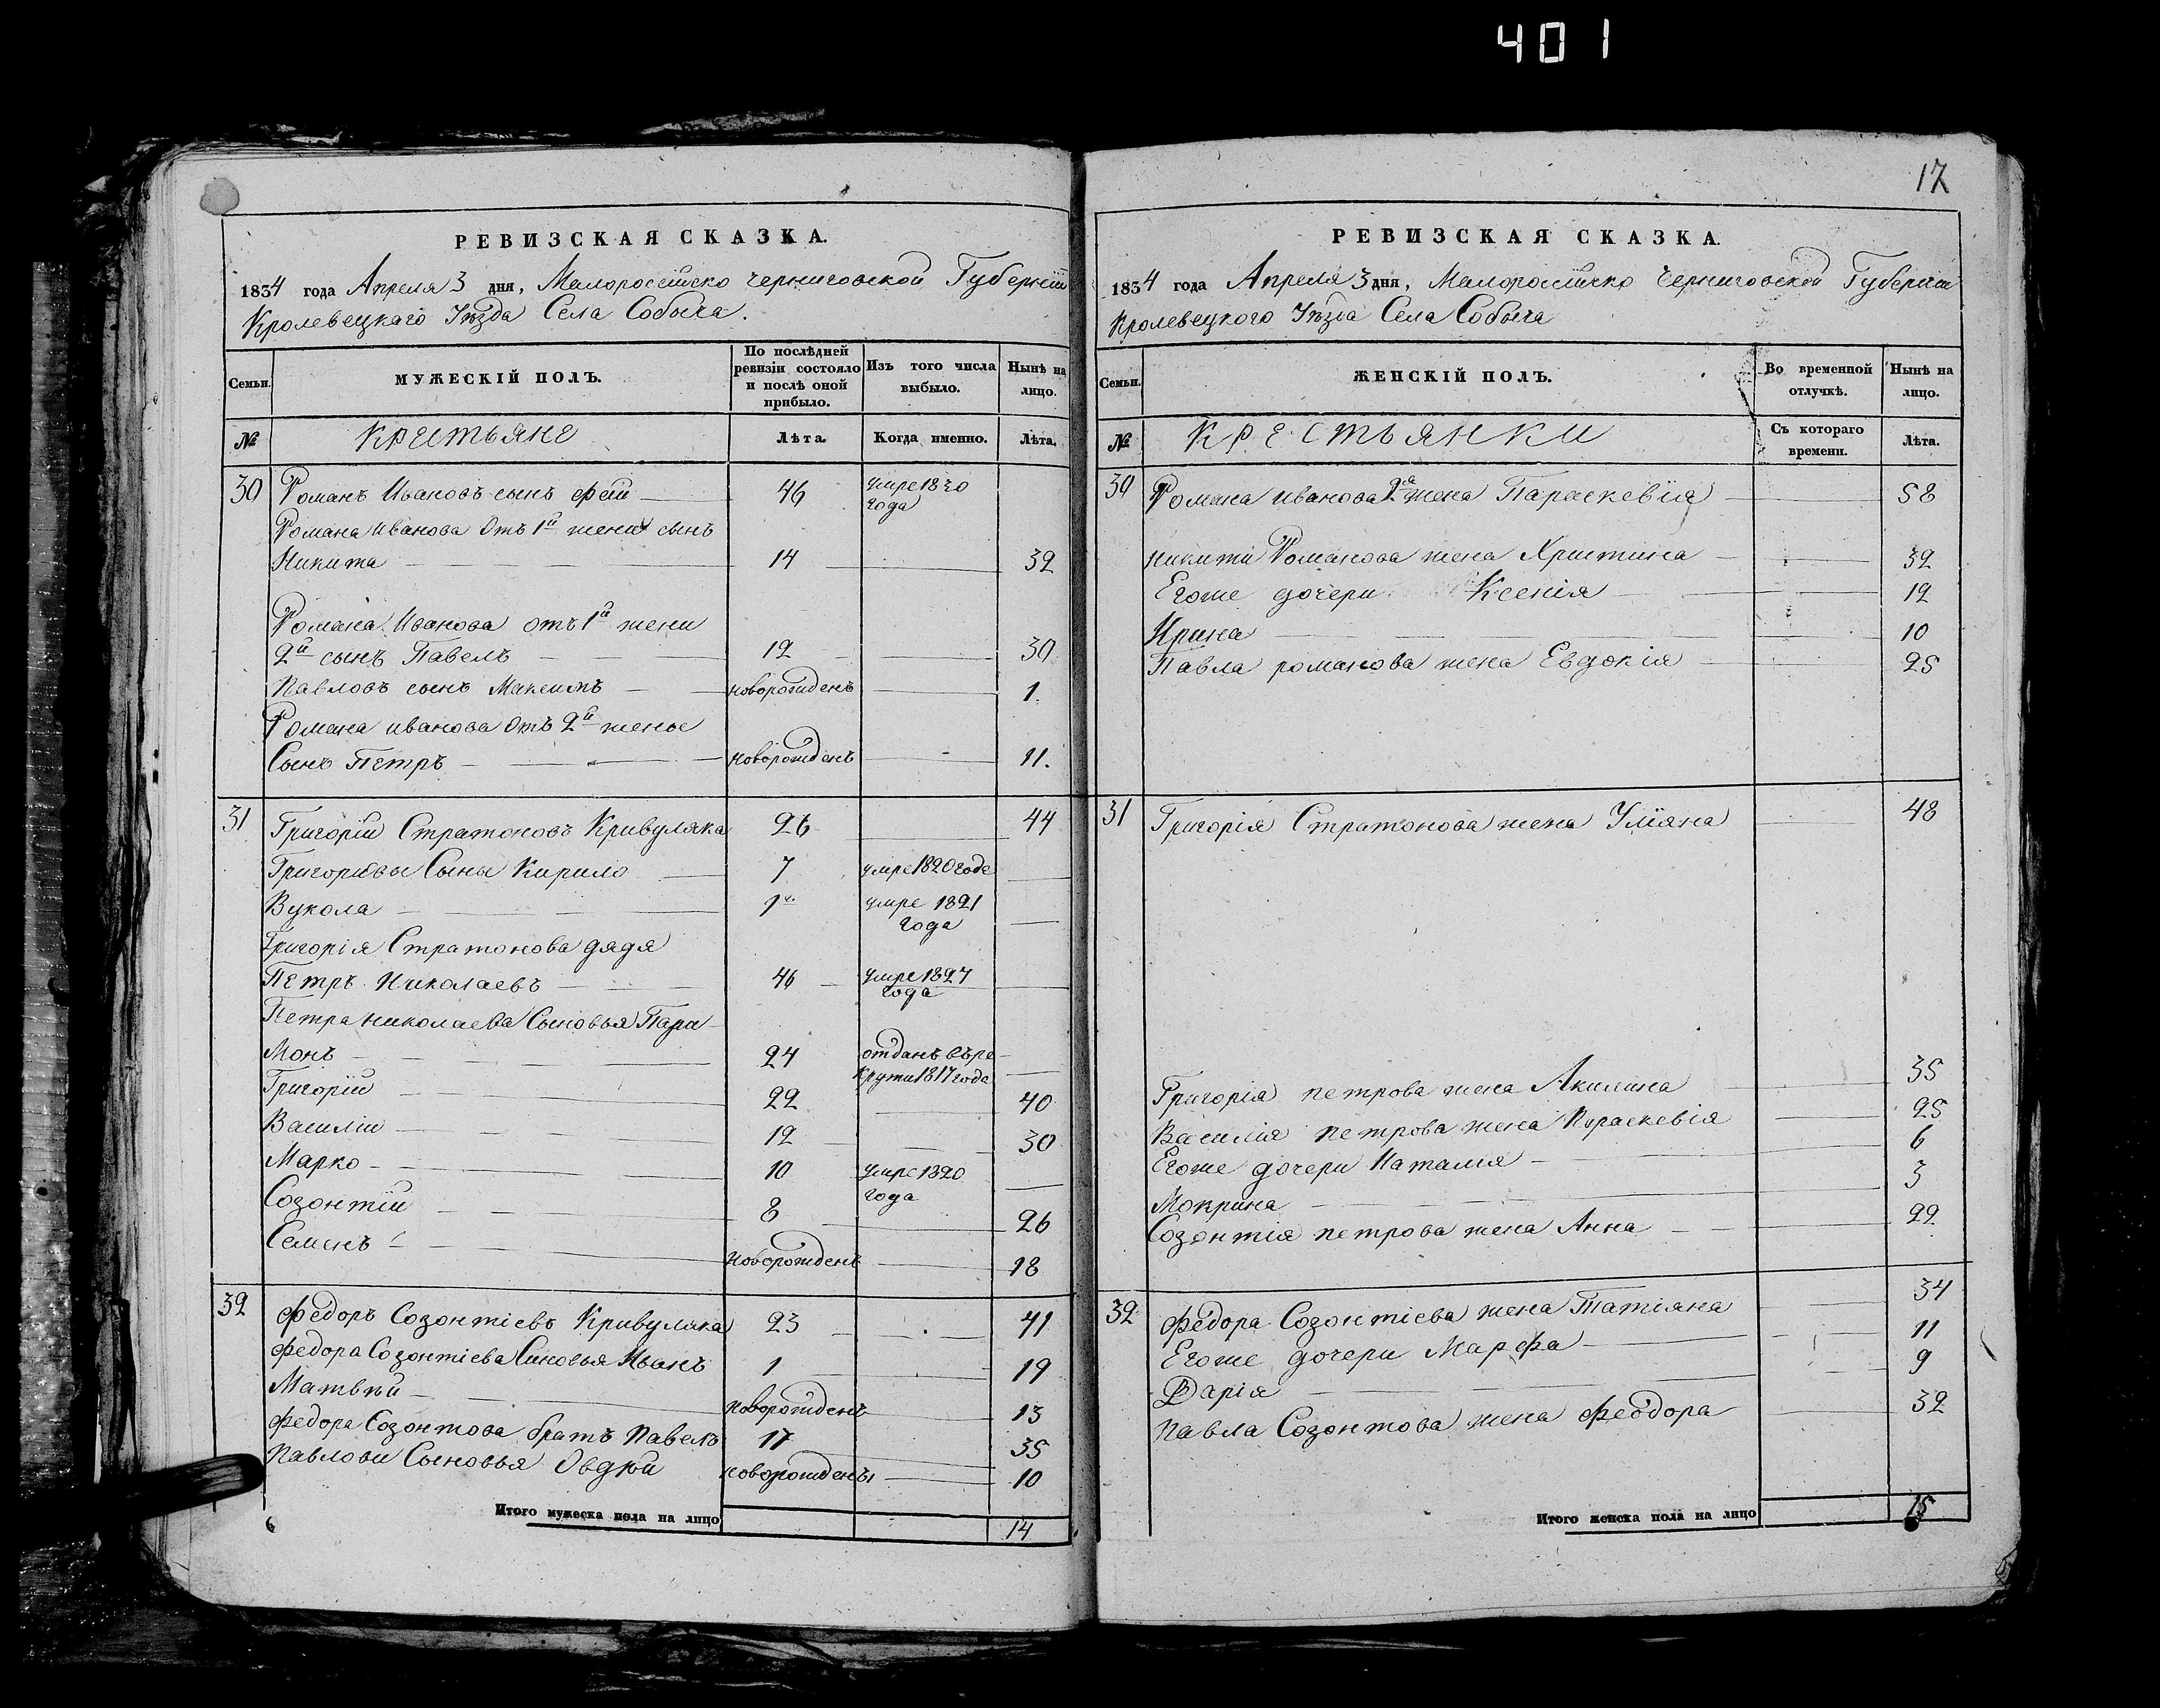 401
РЕВИЗСКАЯ СКАЗКА.
1834 года Апреля 3 дня, Малороссійско Черниговской Губерніи
Кролевецкаго Уѣзда Села Собыча.
Семьи. МУЖЕСКІЙ ПОЛЪ. По послѣдней ревизіи состояло и послѣ оной прибыло. Изъ того числа выбыло. Нынѣ на лицо.
№ Крестьяне Лѣта. Когда именно. Лѣта.
30 Романъ Ивановъ сынъ 46 умре 1830 года
Романа Иванова отъ 1й жены сынъ
Никита 14 32
Романа Иванова отъ 1й жени
2й сынъ Павелъ 12 30
Павловъ сынъ Максимъ новорожденъ 1.
Романа иванова отъ 2й жены
Сынъ Петръ новорожденъ 11.
31 Григорій Стратоновъ Кривуляка 26 44
Григорiевы Сыны Кирило 7 умре 1820 годе
Вукола 1 умре 1821 года
Григорія Стратонова дядя
Петръ Николаевъ 46 умре 1827 года
Петра николаева Сыновья Пари-
Монъ 24 отданъ върекрути 1817 года
Григорій 22 40
Василій 12 30
Марко 10 умре 1820 года
Созонтій 8 26
Семенъ новорожденъ 18
32 Федоръ Созонтіевъ Кривуляка 23 41
Федора Созонтіева Синовья Иванъ 1 19
Матвѣй новорожденъ 13
Федора Созонтова братъ Павелъ 17 35
Павлови Сыновья Овдѣй новорожденъ 10
Итого мужеска пола на лицо 14
6
17
РЕВИЗСКАЯ СКАЗКА.
1834 года Апреля 3 дня, Малоросійско Черниговской Губерніи
Кролевецкого Уѣзда Села Собыча
Семьи. ЖЕНСКІЙ ПОЛЪ. Во временной отлучкѣ. Нынѣ на лицо.
№ Крестьянки Съ котораго времени. Лѣта.
30 Романа иванова 2я жена Параскевія 58
Никити Романова жена Христина 32
Егоже дочери Ксенія 12
Ирина 10
Павла романова жена Евдокія 25
31 Григорія Стратонова жена Уліяна 48
Григорія петрова жена Акилина 35
Василія петрова жена Параскевія 25
Егоже дочери Наталія 6
Мокрина 3
Созонтія петрова жена Анна 22
32 Федора Созонтіева жена Татіяна 34
Егоже дочери Марфа 11
Дарія 9
Павла Созонтова жена Феодора 32
Итого женска пола на лицо 15